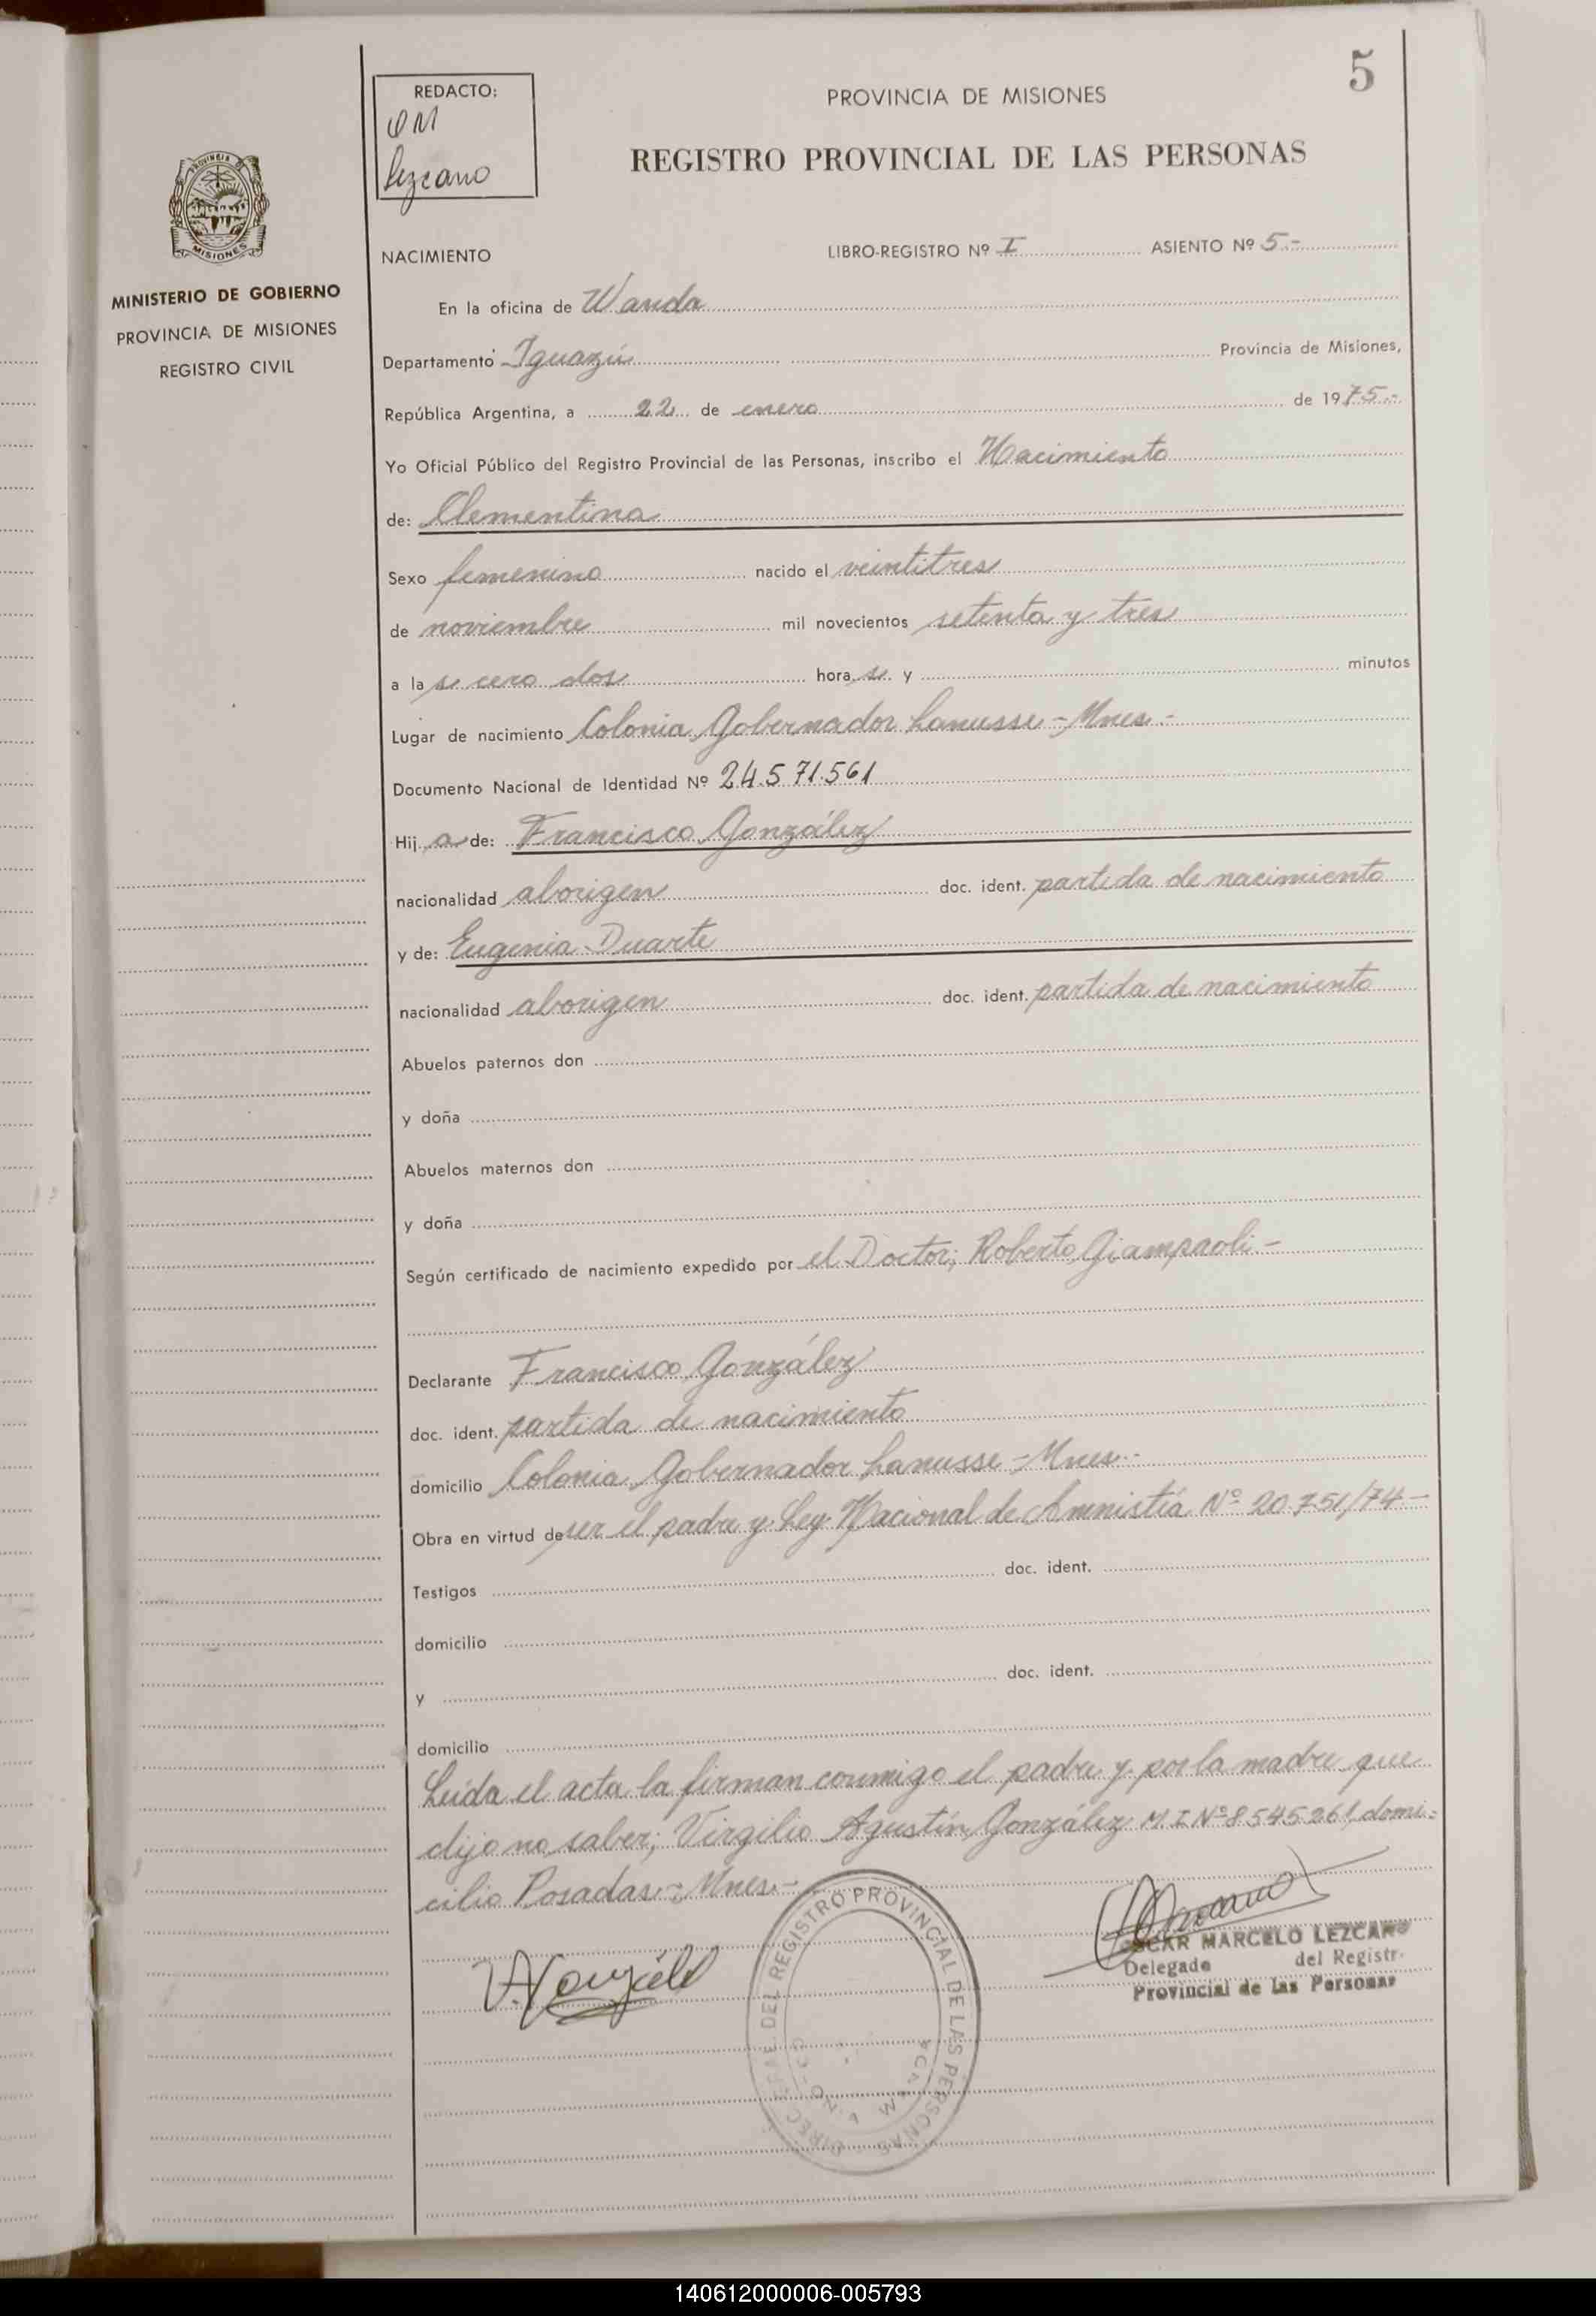 5
REDACTO:
OM
Lezcano
PROVINCIA DE MISIONES
REGISTRO PROVINCIAL DE LAS PERSONAS
PROVINCIA DE
MISIONES
MINISTERIO DE GOBIERNO
PROVINCIA DE MISIONES
REGISTRO CIVIL
NACIMIENTO LIBRO-REGISTRO Nº I ASIENTO Nº 5.-
En la oficina de Wanda
Departamento Iguazú Provincia de Misiones,
República Argentina, a 22 de enero de 1975.-
Yo Oficial Público del Registro Provincial de las Personas, inscribo el Nacimiento
de: Clementina
Sexo femenino nacido el veintitres
de noviembre mil novecientos setenta y tres
a las cero dos horas. y minutos
Lugar de nacimiento Colonia Gobernador Lanusse - Mnes.-
Documento Nacional de Identidad Nº 24.571.561
Hija de: Francisco González
nacionalidad aborigen doc. ident. partida de nacimiento
y de: Eugenia Duarte
nacionalidad aborigen doc. ident. partida de nacimiento
Abuelos paternos don
y doña
Abuelos maternos don
y doña
Según certificado de nacimiento expedido por el Doctor; Roberto Giampaoli-
Declarante Francisco González
doc. ident. partida de nacimiento
domicilio Colonia Gobernador Lanusse - Mnes.-
Obra en virtud de ser el padre y Ley Nacional de Amnistía Nº 20.751/74.-
Testigos doc. ident.
domicilio
y doc. ident.
domicilio
Leída el acta la firman conmigo el padre y por la madre que
dijo no saber; Virgilio Agustín González M.I Nº 8545261, domi=
cilio Posadas - Mnes.-
REGISTRO PROVINCIAL DE LAS PERSONAS
OSCAR MARCELO LEZCANO
Delegado del Registr.
Provincial de las Personas
140612000006-005793